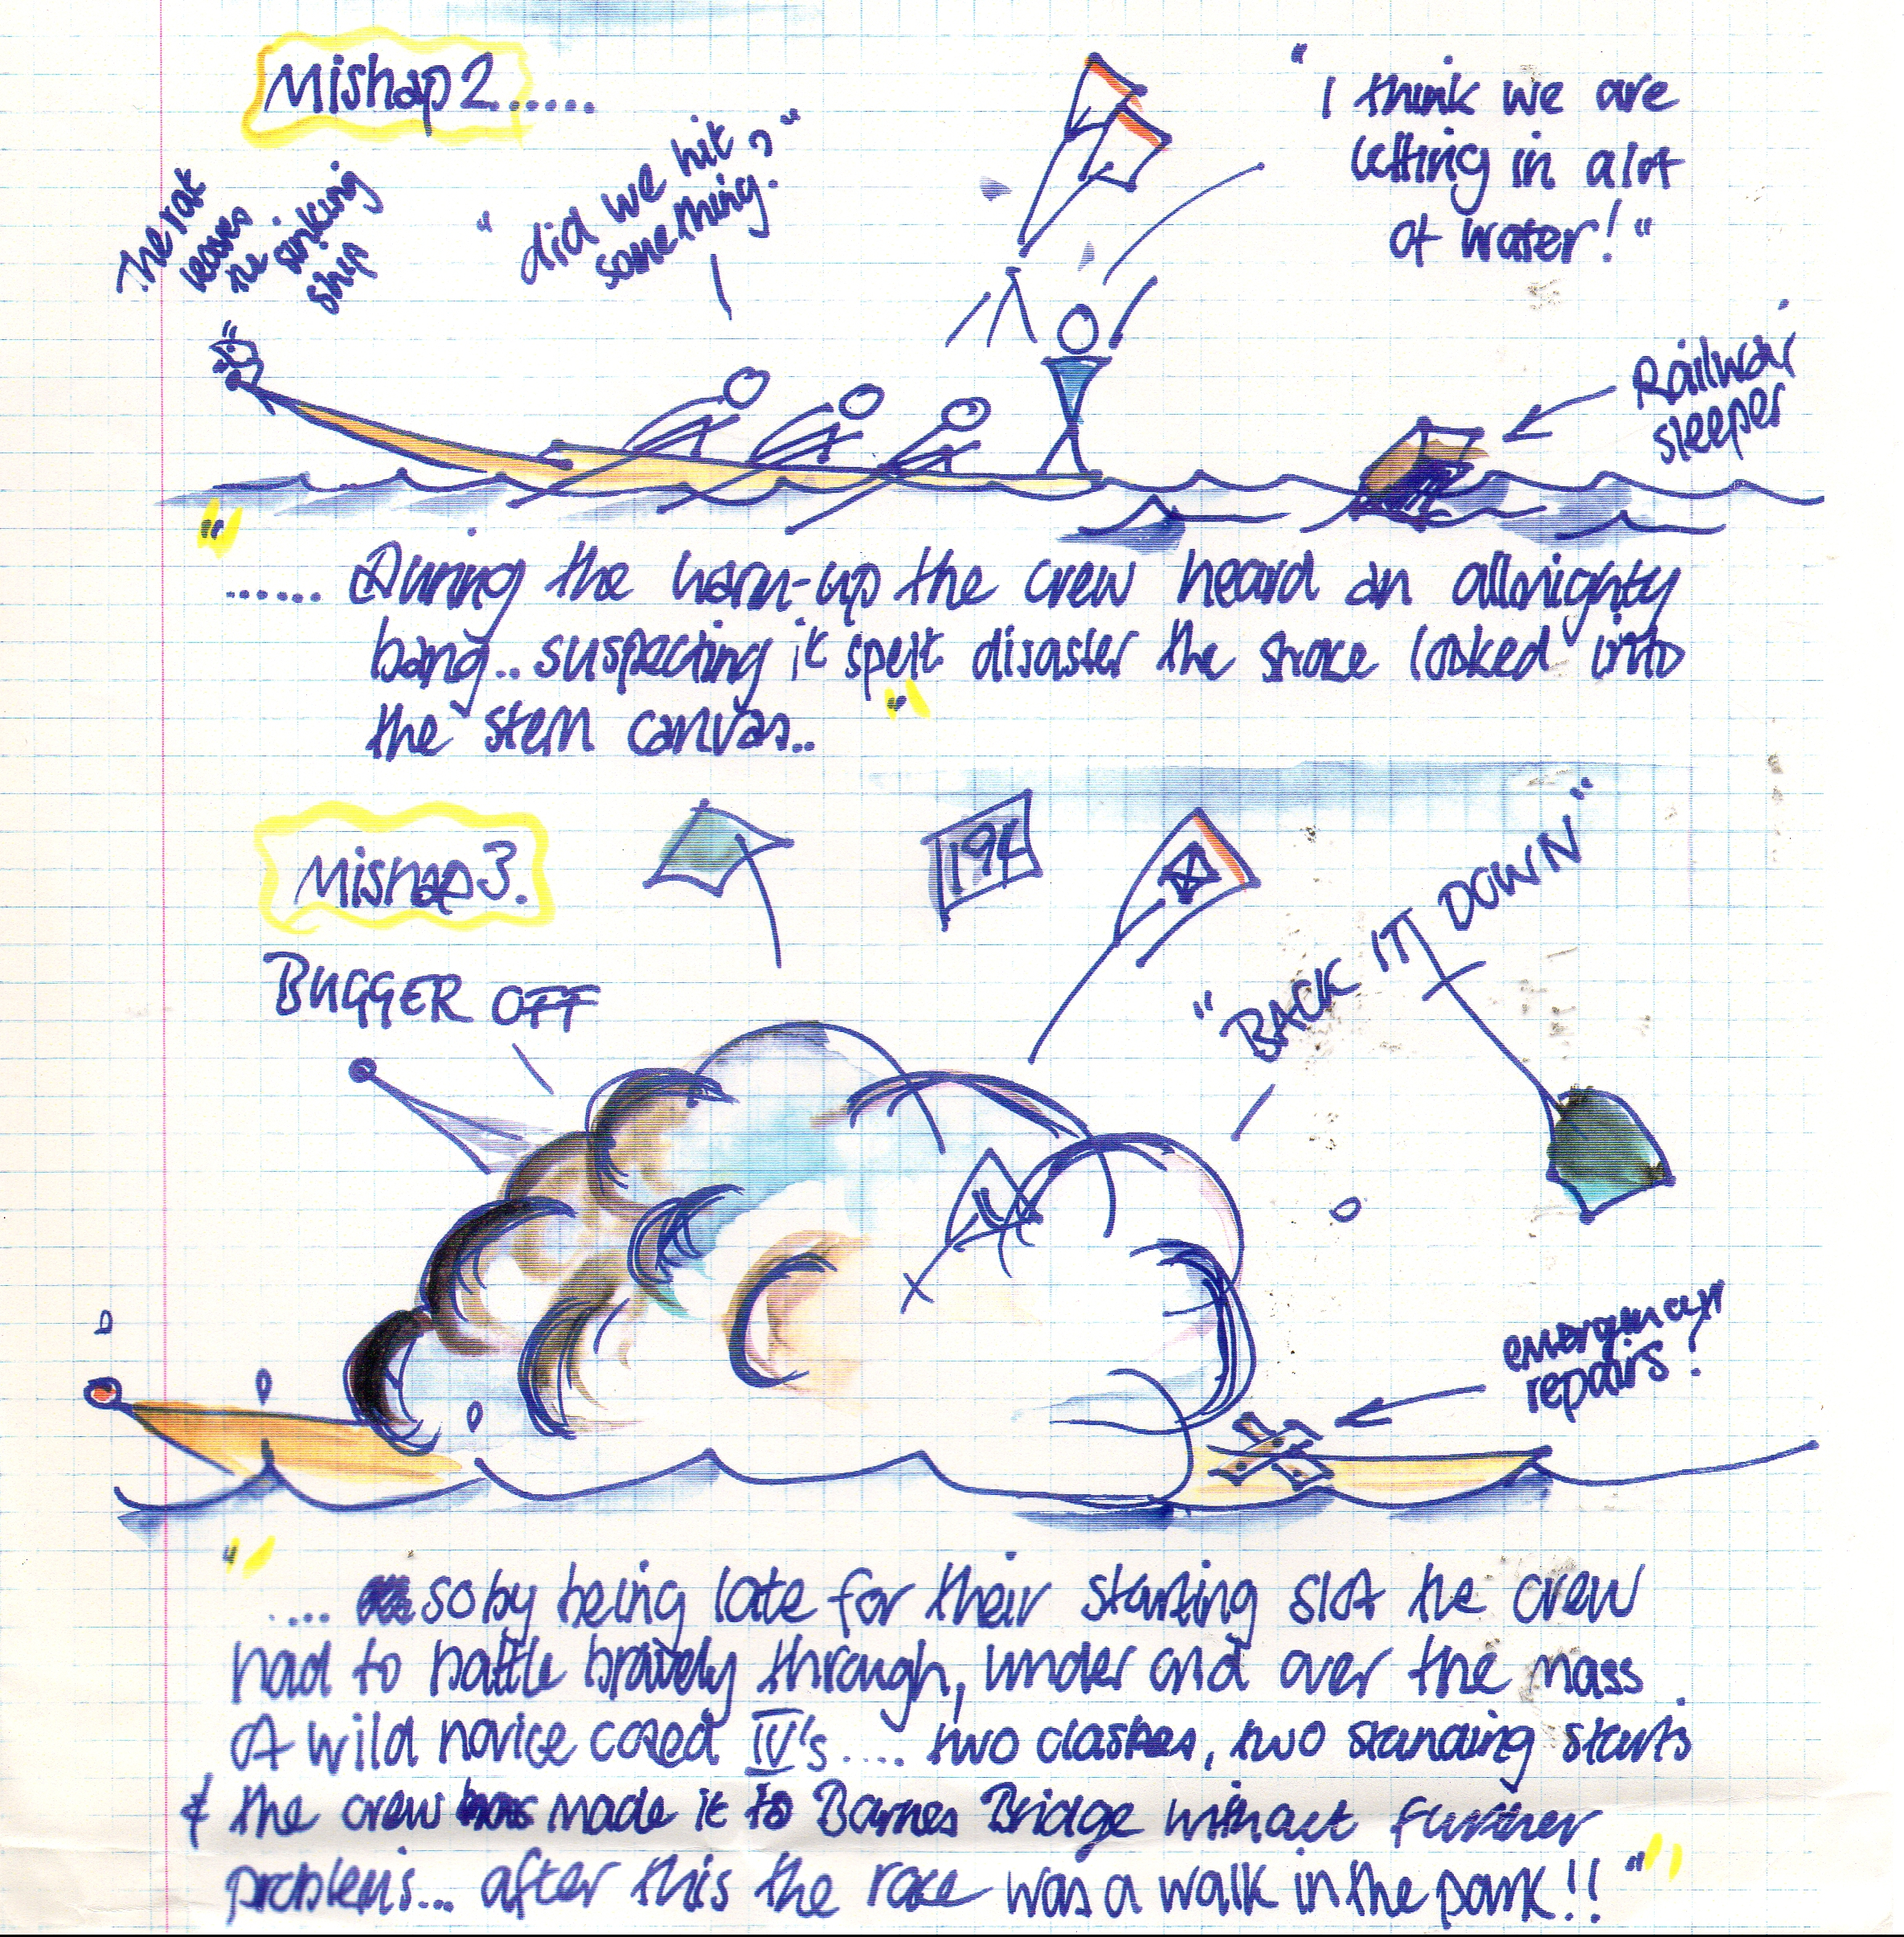 Mishap 2......
The rat
leaves
the sinking
ship
"did we hit
something?"
"I think we are
letting in alot
of water!"
Railway
sleeper
"
...... During the warm-up the crew heard an allmighty
bang.. suspecting it spelt disaster the stroke looked into
the stern canvas.. "
Mishap 3.
194
BUGGER OFF
"BACK IT DOWN"
emergency
repairs!
"
.... so by being late for their starting slot the crew
had to battle bravely through, under and over the mass
of wild novice coxed IV's .... two clashes, two standing starts
& the crew made it to Barnes Bridge without further
problems... after this the race was a walk in the park!! "